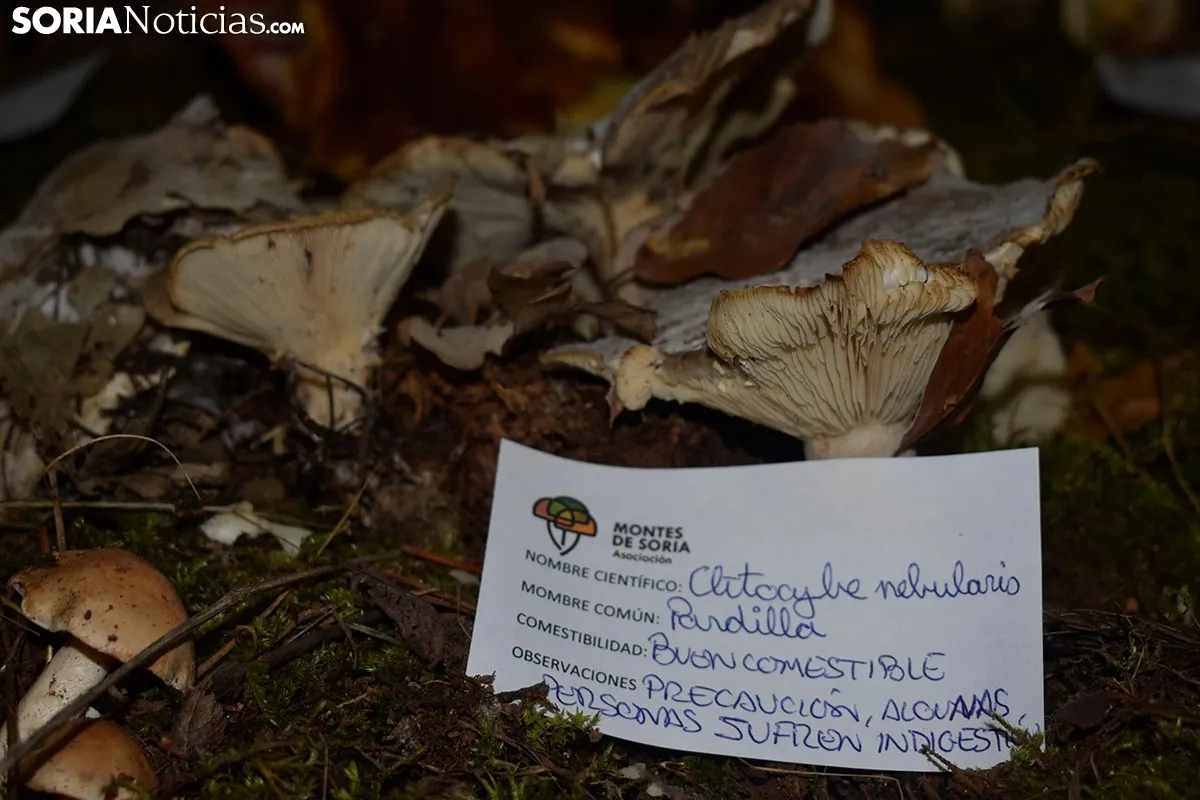 SORIANoticias.com
MONTES
DE SORIA
Asociación
NOMBRE CIENTÍFICO: Clitocybe nebularis
MOMBRE COMÚN: Pardilla
COMESTIBILIDAD: BUEN COMESTIBLE
OBSERVACIONES PRECAUCIÓN, ALGUNAS
PERSONAS SUFREN